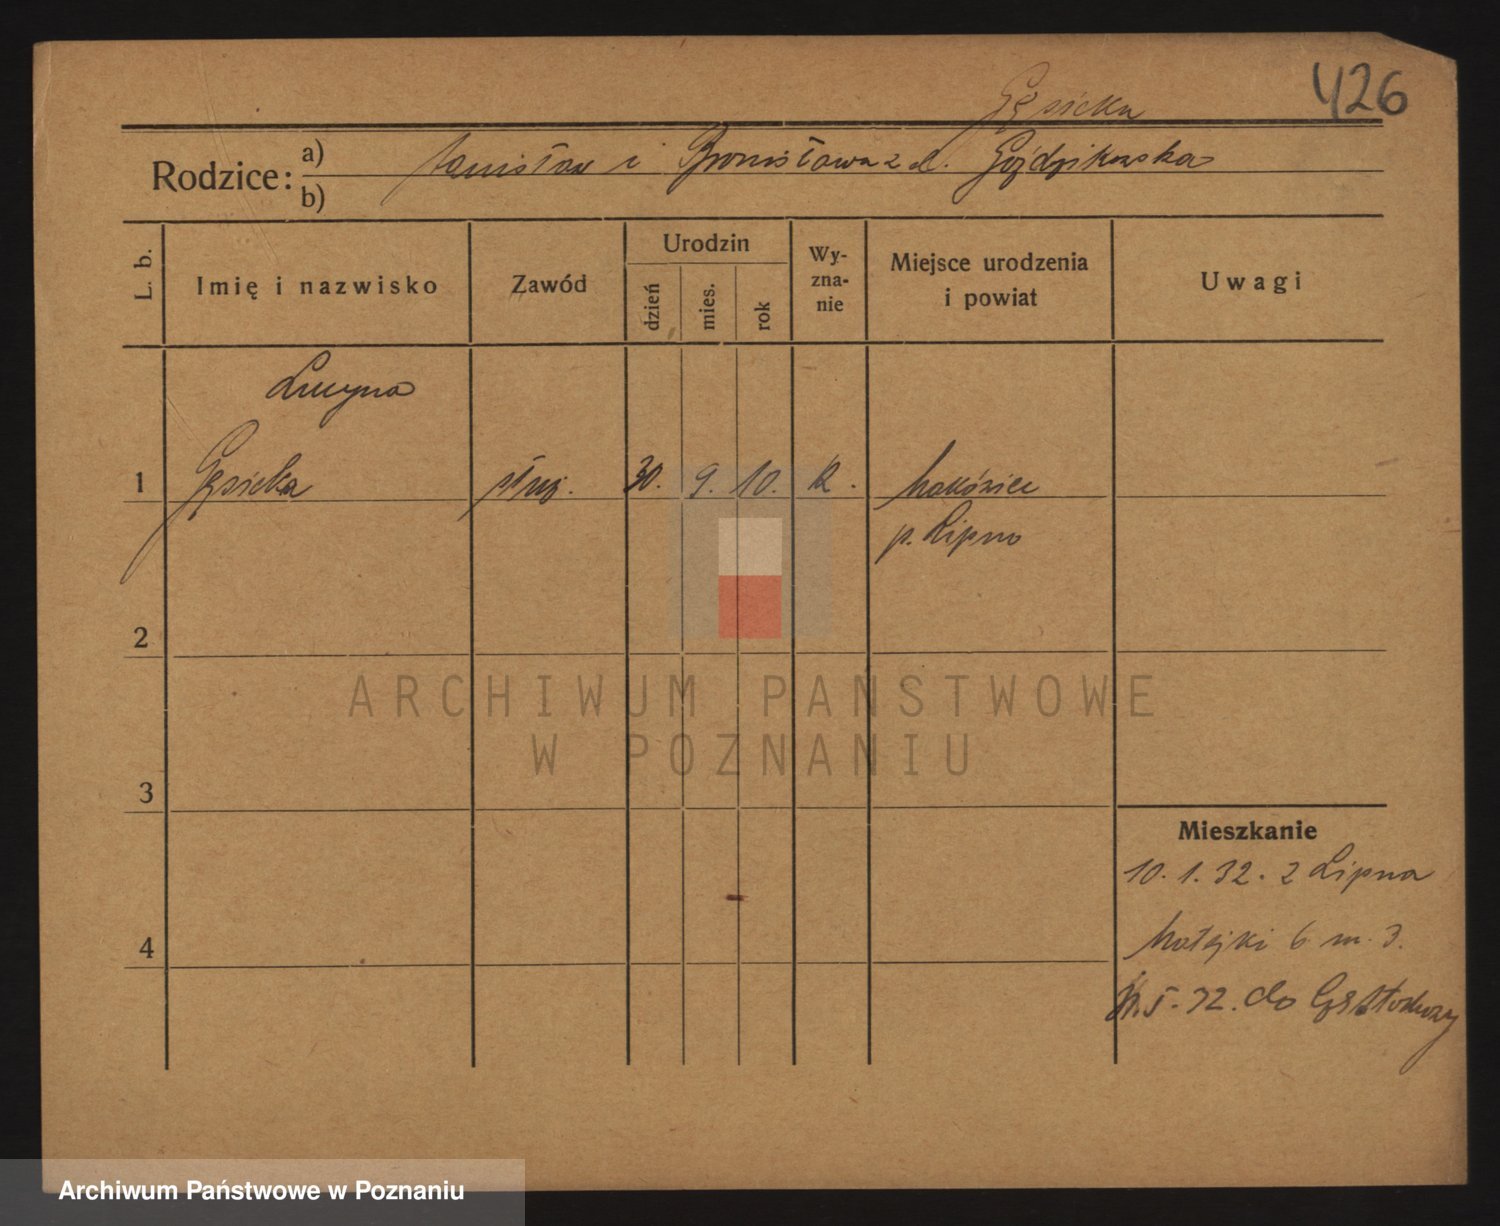 426
Gęsicka
Rodzice: a) Stanisław i Bronisława z d. Goździkowska
b)
L. b. Imię i nazwisko Zawód Urodzin dzień mies. rok Wy-zna-nie Miejsce urodzenia i powiat Uwagi
Lucyna
1 Gęsicka służ. 30. 9. 10. k.
p. Lipno
2
3
4
Mieszkanie
10. 1. 32. z Lipna
Matejki 6 m. 3.
5. 32. do
ARCHIWUM PAŃSTWOWE
W POZNANIU
Archiwum Państwowe w Poznaniu